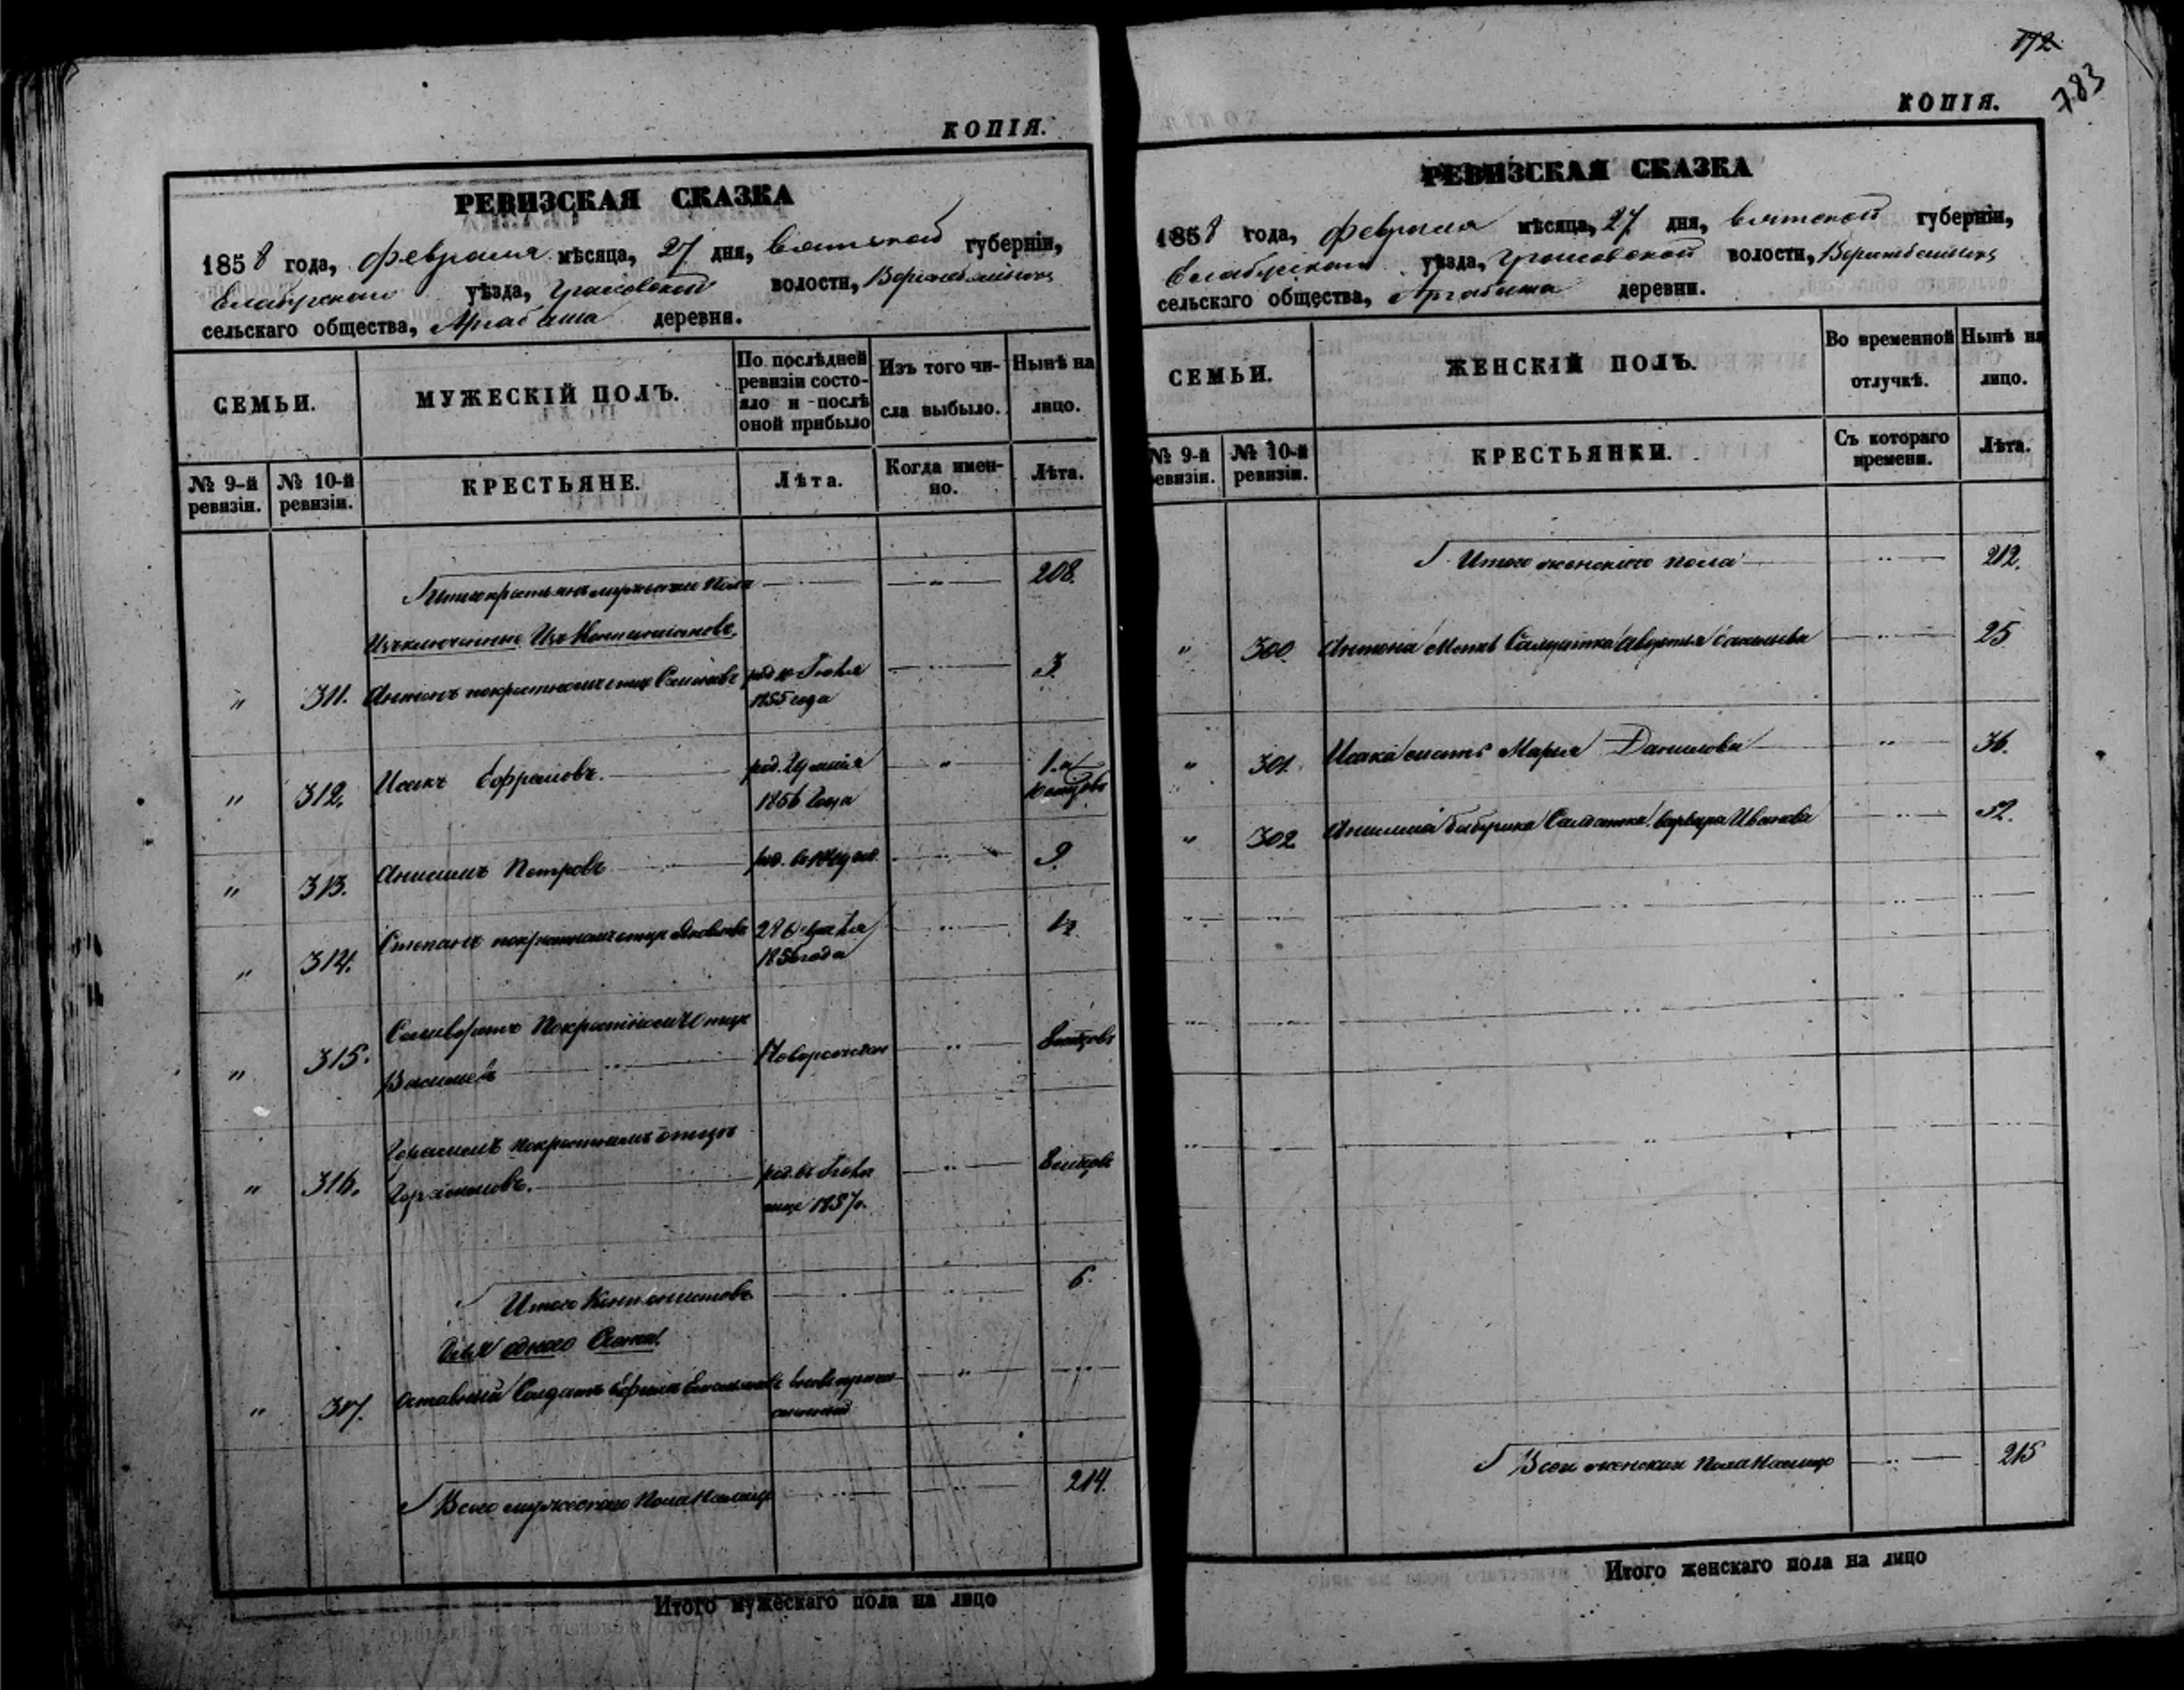 КОПІЯ.
РЕВИЗСКАЯ СКАЗКА
1858 года, февраля мѣсяца, 27 дня, Вятской губерніи,
Елабужскаго уѣзда, Граховской волости,
сельскаго общества, Аргабаша деревни.
СЕМЬИ.
МУЖЕСКІЙ ПОЛЪ.
По послѣдней ревизіи состо-
яло и послѣ оной прибыло
Изъ того чи-
сла выбыло.
Нынѣ на
лицо.
№ 9-й ревизіи.
№ 10-й ревизіи.
КРЕСТЬЯНЕ.
Лѣта.
Когда имен-
но.
Лѣта.
Итого крестьянъ мужеска пола 208.
Изключенные Изъ Кантонистовъ.
" 311. Антонъ покрестномъ отцѣ род. Іюля 3.
1855 года
" 312. Исакъ Ефремовъ. род. 29 1. и
1856 года
" 313. Анисимъ Петровъ род. 9.
" 314. Степанъ покрестномъ отцѣ Яковлевъ 28
1856 года
" 315. Селиверстъ Покрестномъ Отцѣ
Васильевъ Новорожден 8 месяцовъ
" 316. Герасимъ покрестномъ отцѣ
род. въ Іюлѣ 8 месяцовъ
1857 г.
Итого Кантонистовъ 6.
" 317. Отставный Солдатъ Ефимъ
Всего мужескаго Пола Налицо 214.
Итого мужескаго пола на лицо
172
783
КОПІЯ.
РЕВИЗСКАЯ СКАЗКА
1858 года, февраля мѣсяца, 27 дня, Вятской губерніи,
Елабужскаго уѣзда, Граховской волости,
сельскаго общества, Аргабаша деревни.
СЕМЬИ.
ЖЕНСКІЙ ПОЛЪ.
Во временной
отлучкѣ.
Нынѣ на
лицо.
№ 9-й ревизіи.
№ 10-й ревизіи.
КРЕСТЬЯНКИ.
Съ котораго
времени.
Лѣта.
Итого женскаго пола 212.
" 300. Антона Мать Солдатка Авдотья 25
" 301. Исака мать Марья Данилова 36.
" 302. Анисима бабушка Солдатка Варвара Иванова 52.
Всего женскаго Пола Налицо 215
Итого женскаго пола на лицо